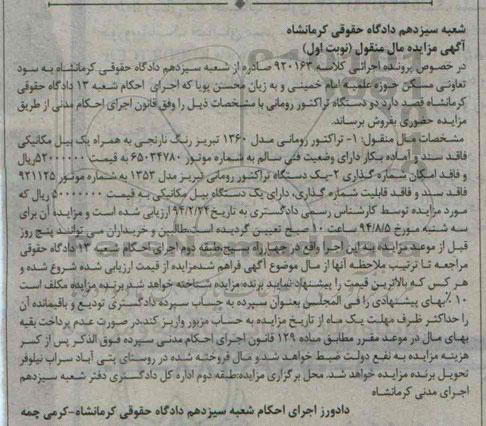 شعبه سیزدهم دادگاه حقوقی کرمانشاه
آگهی مزایده مال منقول (نوبت اول)
در خصوص پرونده اجرائی کلاسه ۹۲۰۱۶۳ صادره از شعبه سیزدهم دادگاه حقوقی کرمانشاه به سود
تعاونی مسکن حوزه علمیه امام خمینی و به زیان محسن پویا که اجرای احکام شعبه ۱۳ دادگاه حقوقی
کرمانشاه قصد دارد دو دستگاه تراکتور رومانی با مشخصات ذیل را وفق قانون اجرای احکام مدنی از طریق
مزایده حضوری بفروش برساند.
مشخصات مال منقول: ۱- تراکتور رومانی مدل ۱۳۶۰ تبریز رنگ نارنجی به همراه یک بیل مکانیکی
فاقد سند و آماده بکار دارای وضعیت فنی سالم به شماره موتور ۶۵۰۳۴۷۸۰ به قیمت ۵۲۰۰۰۰۰۰ریال
و فاقد امکان شماره گذاری ۲-یک دستگاه تراکتور رومانی تبریز مدل ۱۳۵۳ به شماره موتور ۹۲۱۱۲۵
فاقد سند و فاقد قابلیت شماره گذاری، دارای یک دستگاه بیل مکانیکی به قیمت ۵۰۰۰۰۰۰۰ ریال که
مورد مزایده توسط کارشناس رسمی دادگستری به تاریخ ۹۴/۲/۲۴ ارزیابی شده است و مزایده آن برای
سه شنبه مورخ ۹۴/۸/۵ ساعت ۱۰ صبح تعیین گردیده است.طالبین و خریداران می توانند پنج روز
قبل از موعد مزایده به این اجرا واقع در چهارراه بسیج،طبقه دوم اجرای احکام شعبه ۱۳ دادگاه حقوقی
مراجعه تا ترتیب ملاحظه آنها از مال موضوع آگهی فراهم شد.مزایده از قیمت ارزیابی شده شروع شده و
هر کس که بالاترین قیمت را پیشنهاد نماید برنده مزایده شناخته خواهد شد.برنده مزایده مکلف است
۱۰٪بهای پیشنهادی را فی المجلس بعنوان سپرده به حساب سپرده دادگستری تودیع و باقیمانده آن
را حداکثر ظرف مهلت یک ماه از تاریخ مزایده به حساب مزبور واریز کند،در صورت عدم پرداخت بقیه
بهای مال در موعد مقرر مطابق ماده ۱۲۹ قانون اجرای احکام مدنی سپرده فوق الذکر پس از کسر
هزینه مزایده به نفع دولت ضبط خواهد شد و مال فروخته شده در روستای پتی آباد سراب نیلوفر
تحویل برنده مزایده خواهد شد. محل برگزاری مزایده:طبقه دوم اداره کل دادگستری دفتر شعبه سیزدهم
اجرای مدنی کرمانشاه
دادورز اجرای احکام شعبه سیزدهم دادگاه حقوقی کرمانشاه-کرمی چمه